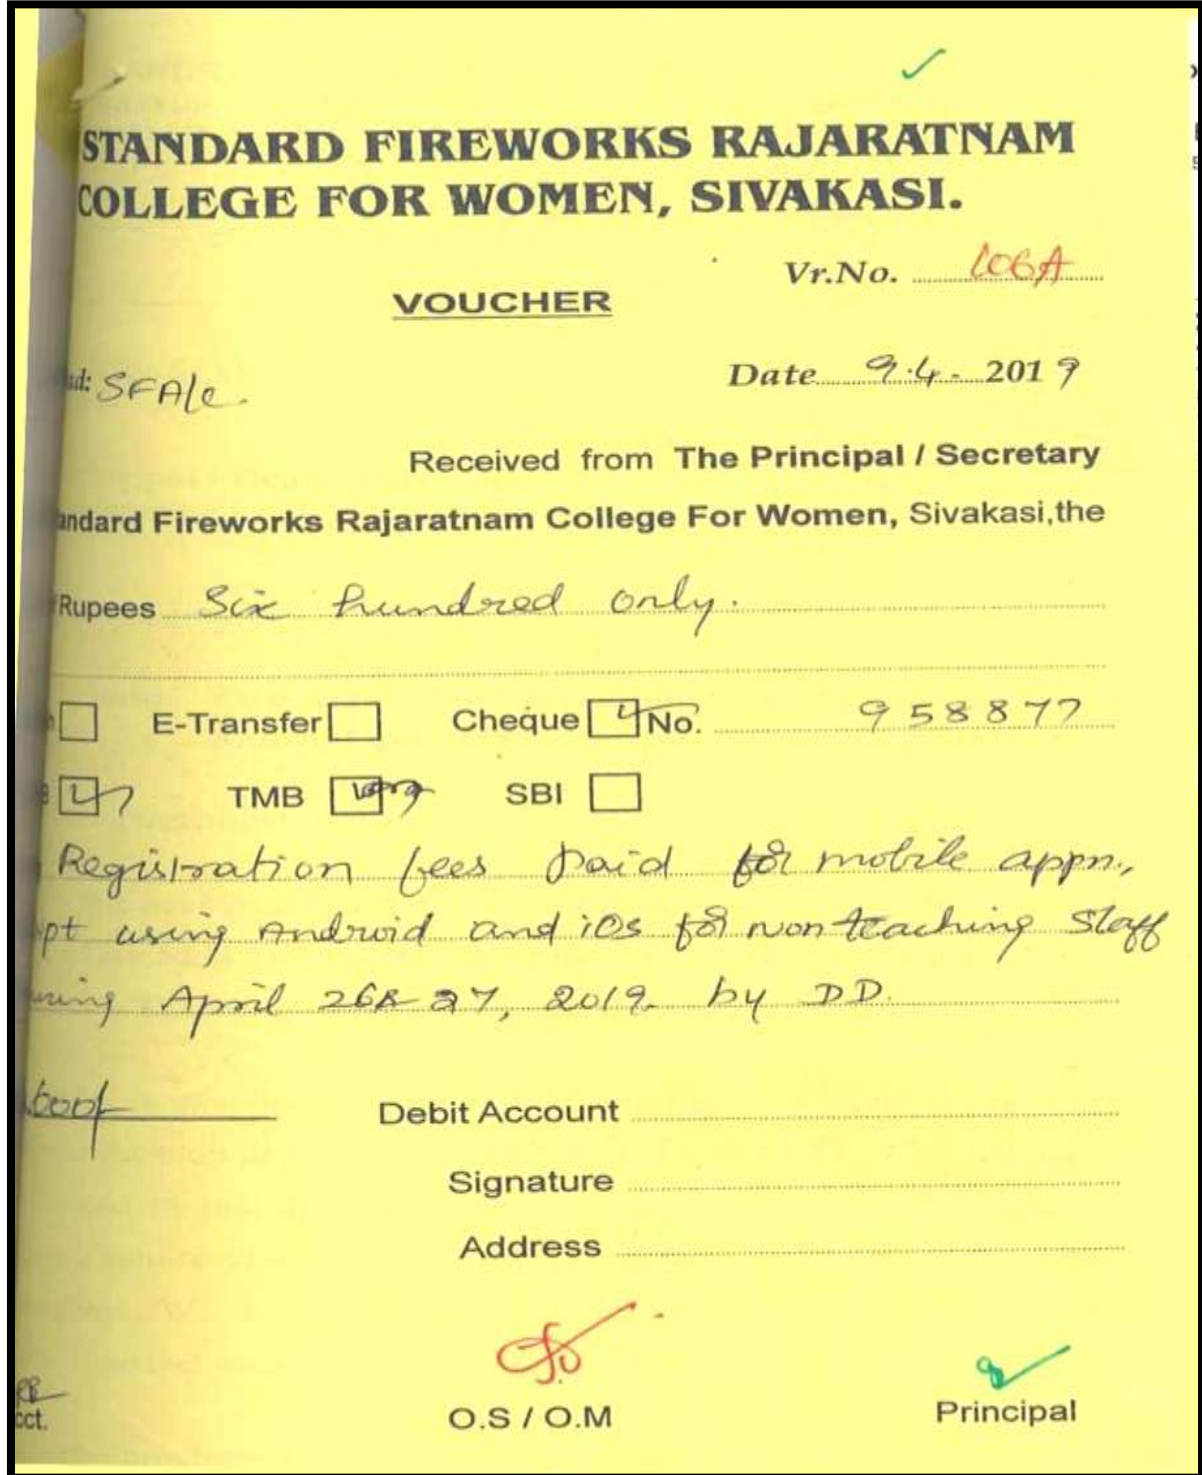 STANDARD FIREWORKS RAJARATNAM
COLLEGE FOR WOMEN, SIVAKASI.
Vr.No. 106A
VOUCHER
Date 9.4. 2019
SFA/c.
Received from The Principal / Secretary
andard Fireworks Rajaratnam College For Women, Sivakasi,the
Rupees Six hundred only.
E-Transfer Cheque No. 958877
TMB SBI
Registration fees paid for mobile appn.,
pt using Android and iOs for non teaching Staff
April 26& 27, 2019 by DD.
600/-
Debit Account
Signature
Address
cct.
O.S / O.M
Principal